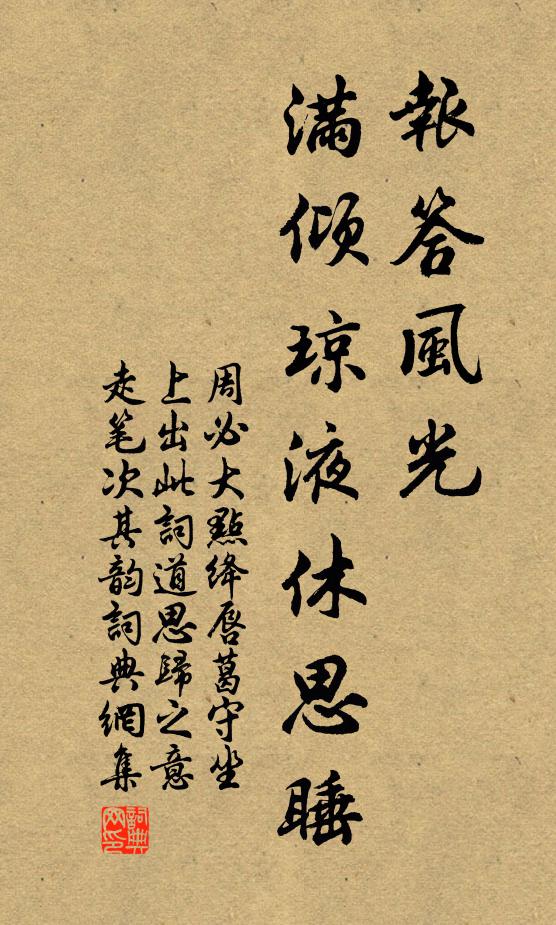 報答風光
滿傾琼液休思睡
周必大點絳唇葛守坐
上出此詞道思歸之意
走笔次其韵詞典網集
詞典网印